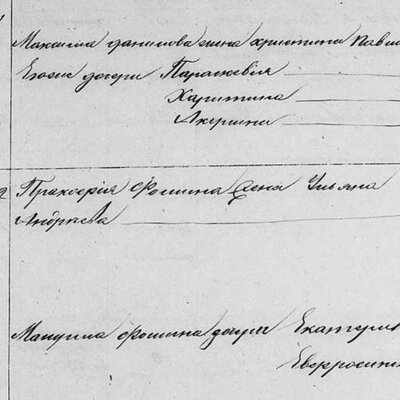 Максима Данилова жена Христина Павл
Егоже дочери Параскевия
Харитина
Акулина
Прокофия Фомина жена Ульяна
Андреева
Фомина дочери Екатерин
Евфросиния